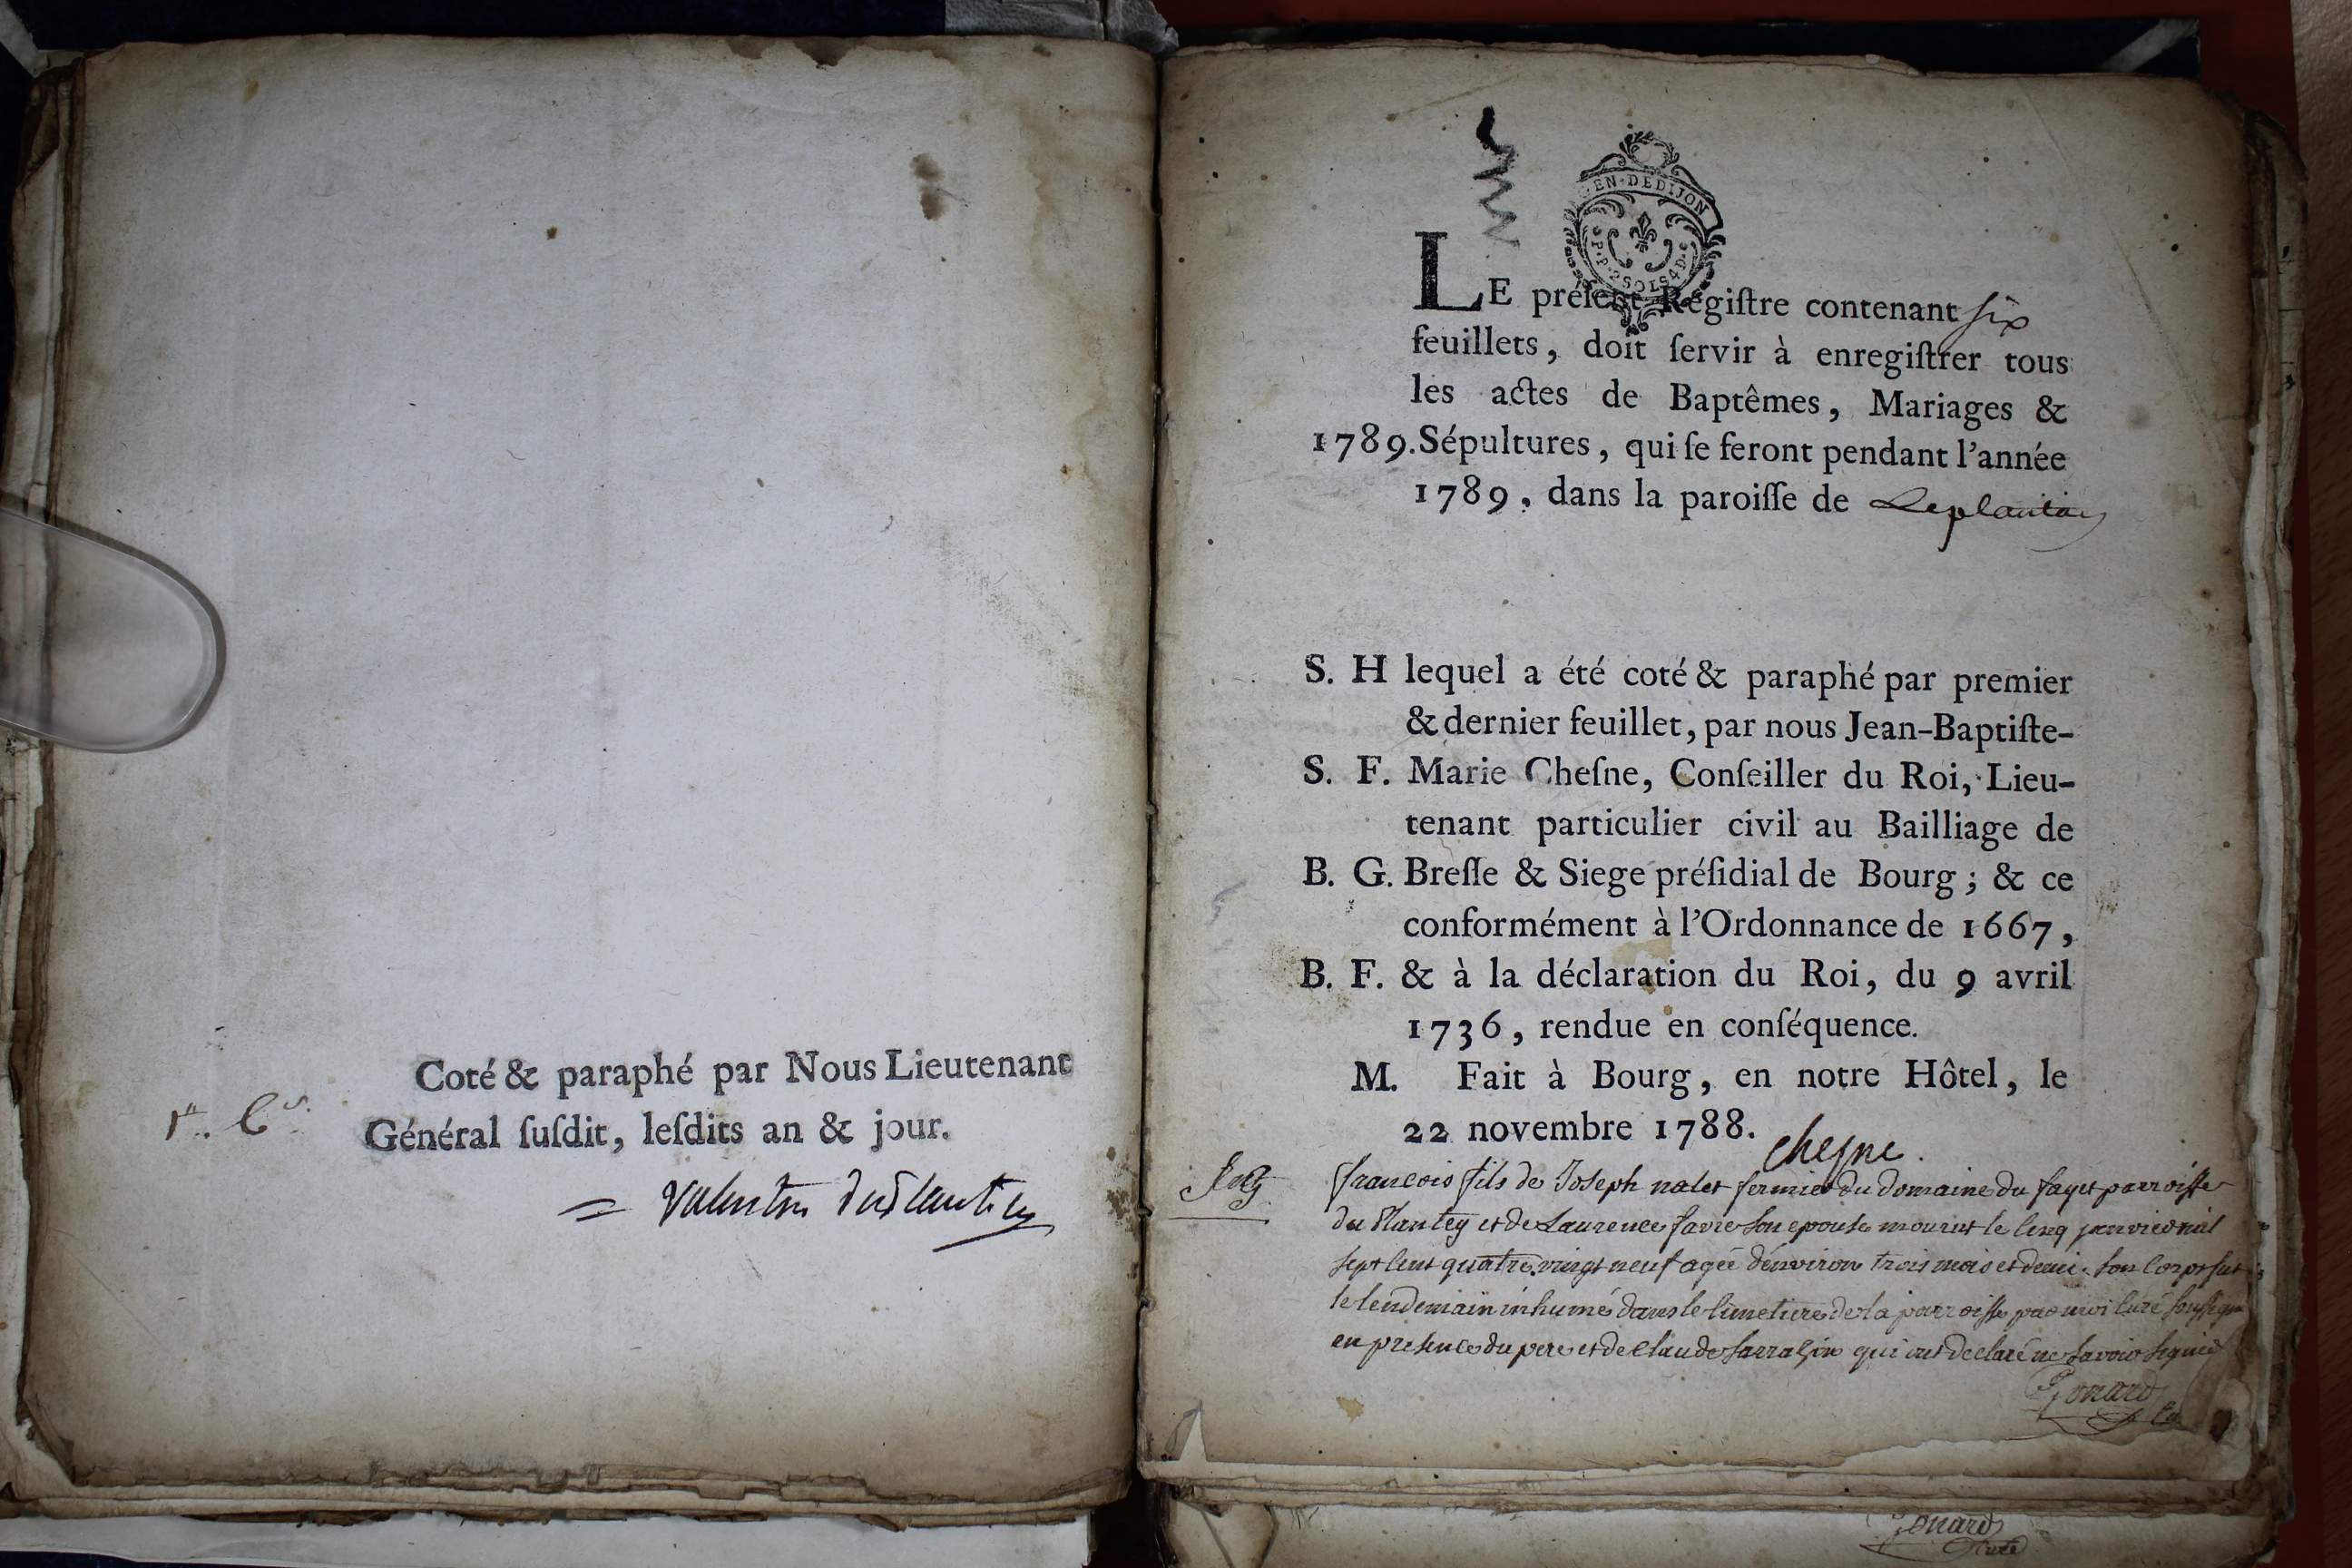 Coté & paraphé par Nous Lieutenant
Général ſuſdit, leſdits an & jour.
EN·DEDIJON
P·P·2SOLS4D·
LE préſent Regiſtre contenant six
feuillets, doit ſervir à enregiſtrer tous
les actes de Baptêmes, Mariages &
1789. Sépultures, qui ſe feront pendant l'année
1789, dans la paroiſſe de Leplantay
S. H lequel a été coté & paraphé par premier
& dernier feuillet, par nous Jean-Baptiſte-
S. F. Marie Cheſne, Conſeiller du Roi, Lieu-
tenant particulier civil au Bailliage de
B. G. Breſſe & Siege préſidial de Bourg; & ce
conformément à l'Ordonnance de 1667,
B. F. & à la déclaration du Roi, du 9 avril
1736, rendue en conſéquence.
M. Fait à Bourg, en notre Hôtel, le
22 novembre 1788.
chesne.
francois fils de Joseph nalet fermier du domaine du fayet parroisse
du Plantey et de Laurence favre son epouse mourut le cinq janvier mil
sept cent quatre vingt neuf agée d'environ trois mois et demi. son corps fut
le lendemain inhumé dans le cimetiere de la parroisse par moi curé soussigné
en presence du pere et de claude sarrasin qui ont declaré ne savoir signer
Gonard
Gonard
Curé